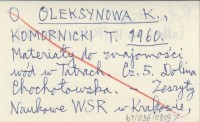 O OLEKSYNOWA K.,
KOMORNICKI T. 1960.
Materiały do znajomości
wód w Tatrach. Cz. 5. Dolina
Chochołowska. – Zeszyty
Naukowe WSR w Krakowie,